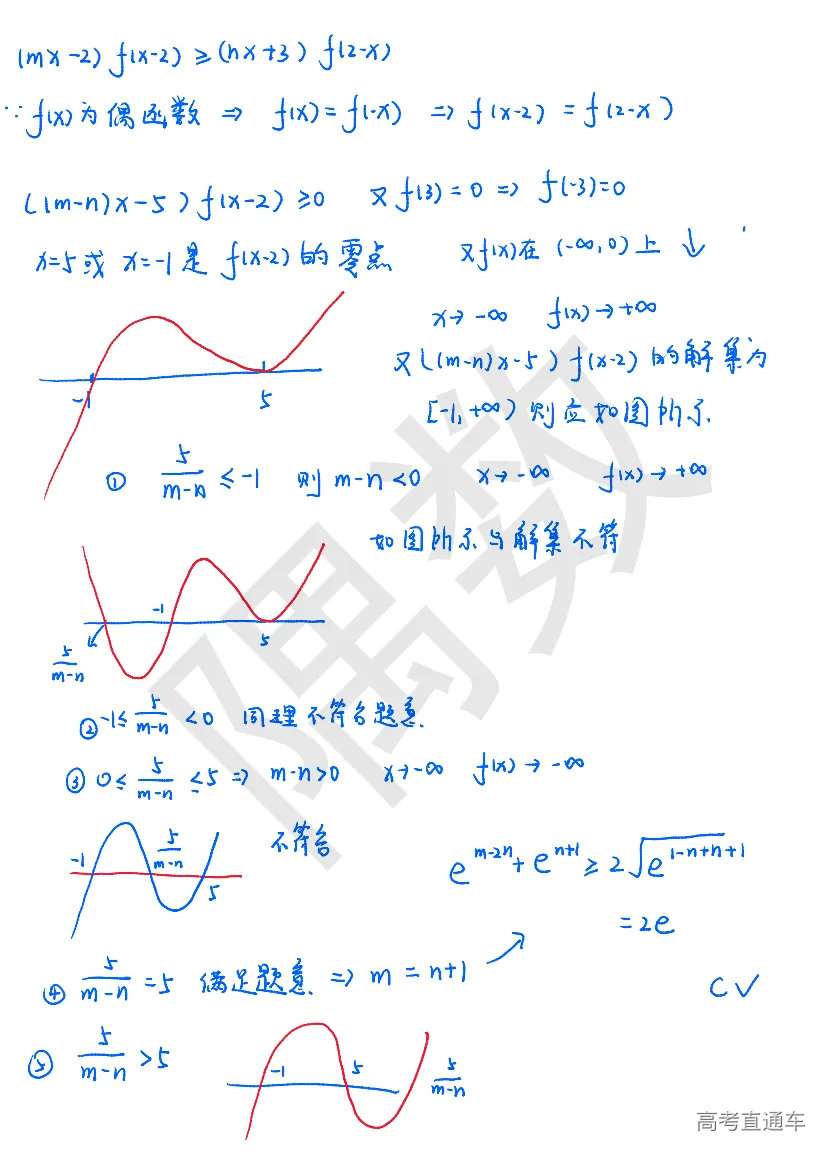 (mx-2)f(x-2)≥(nx+3)f(2-x)
∵f(x)为偶函数 ⇒ f(x)=f(-x) ⇒ f(x-2)=f(2-x)
((m-n)x-5)f(x-2)≥0 又f(3)=0 ⇒ f(-3)=0
x=5或 x=-1是 f(x-2)的零点 又f(x)在(-∞,0)上↓
x→-∞ f(x)→+∞
又((m-n)x-5)f(x-2)的解集为
[-1,+∞) 则应如图所示
-1 5
① 5/(m-n) ≤-1 则 m-n<0 x→-∞ f(x)→+∞
如图所示与解集不符
5/(m-n) -1 5
② -1≤ 5/(m-n) <0 同理不符合题意
③ 0≤ 5/(m-n) ≤5 ⇒ m-n>0 x→-∞ f(x)→-∞
-1 5/(m-n) 5 不符合
e^(m-2n)+e^(n+1)≥2√(e^(1-n+n+1))
=2e
④ 5/(m-n) =5 满足题意 ⇒ m=n+1
C✓
⑤ 5/(m-n) >5
-1 5 5/(m-n)
隅数
高考直通车